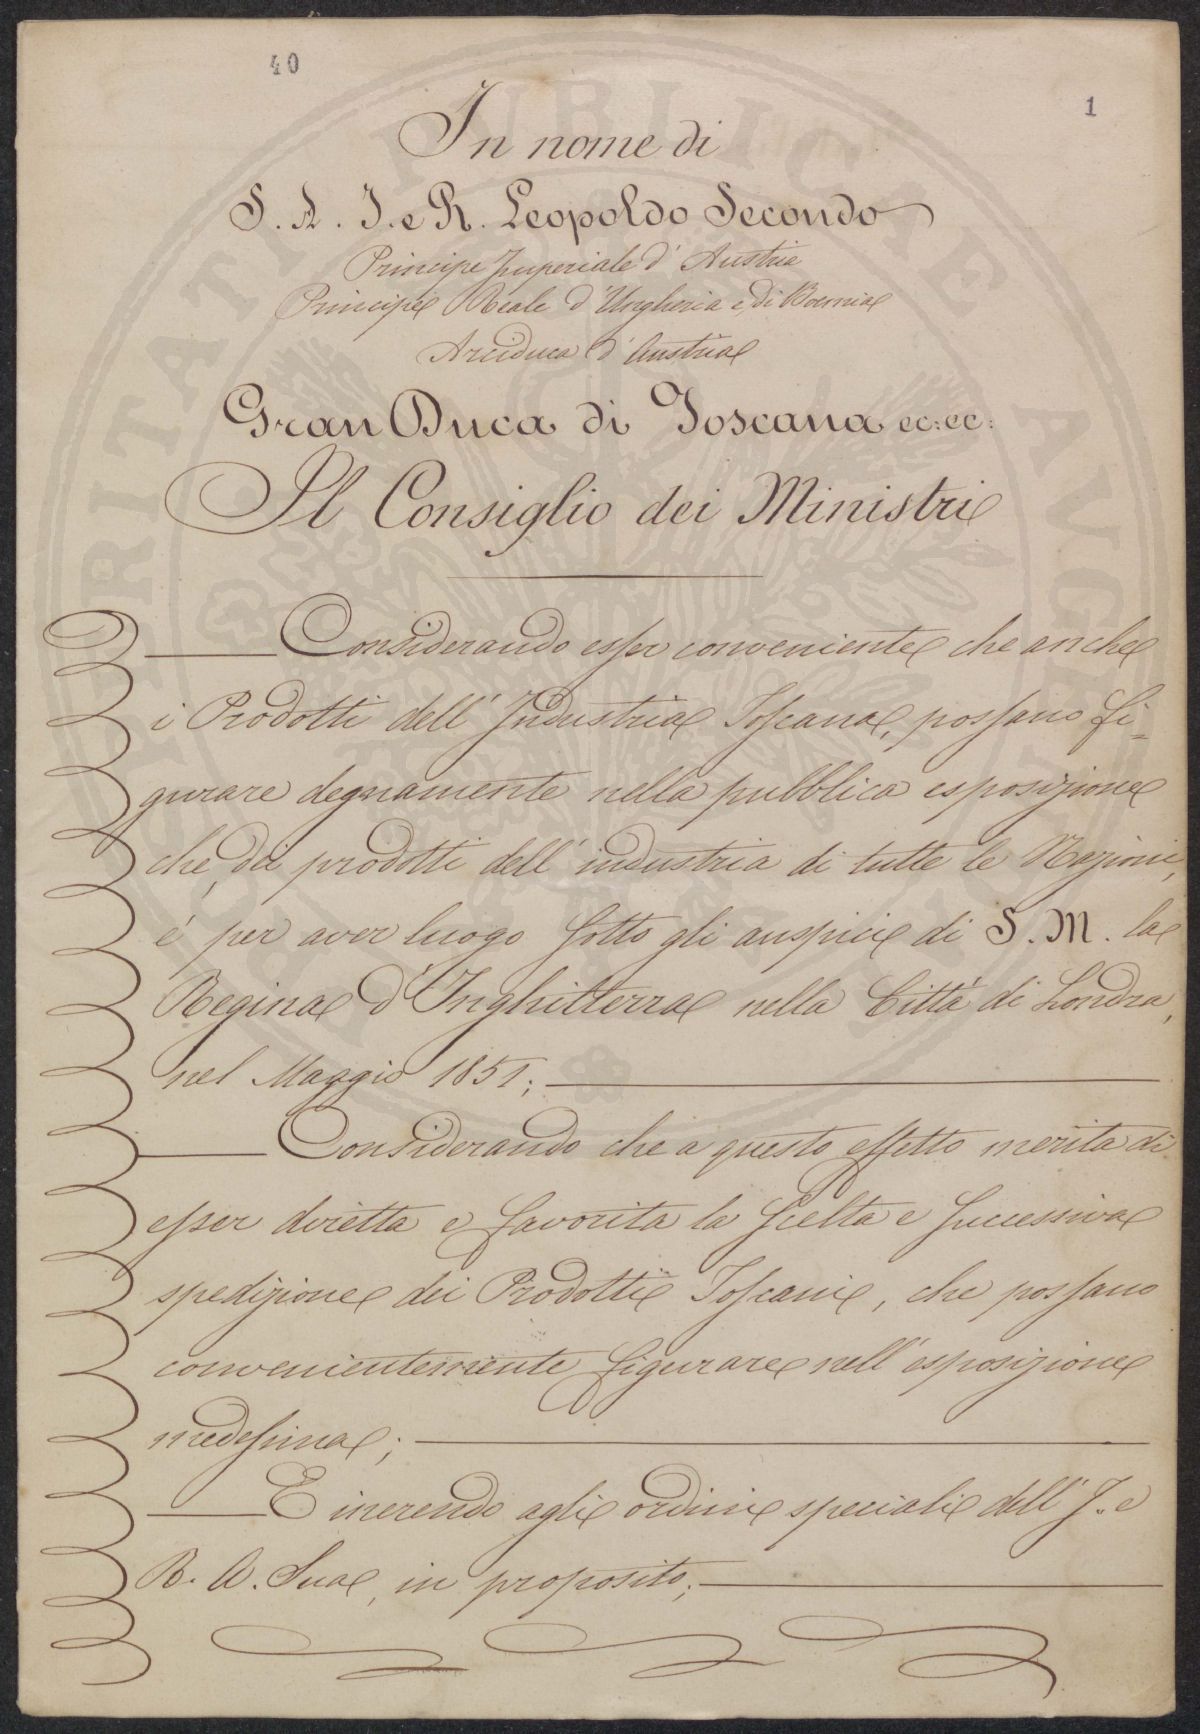 40
1
In nome di
S. A. I. e R. Leopoldo Secondo
Principe Imperiale d' Austria
Principe Reale d' Ungheria e di Boemia
Arciduca d' Austria
Gran Duca di Toscana ec: ec:
Il Consiglio dei Ministri
Considerando esser conveniente che anche
i Prodotti dell' Industria Toscana, possano fi=
gurare degnamente nella pubblica esposizione
che, dei prodotti dell' industria di tutte le Nazioni,
é per aver luogo sotto gli auspici di S. M. la
Regina d' Inghilterra nella Città di Londra,
nel Maggio 1851;
Considerando che a questo effetto merita di
esser diretta e favorita la scelta e successiva
spedizione dei Prodotti Toscani, che possano
convenientemente figurare nell' esposizione
medesima;
E inerendo agli ordini speciali dell' I. e
R. A. Sua, in proposito;